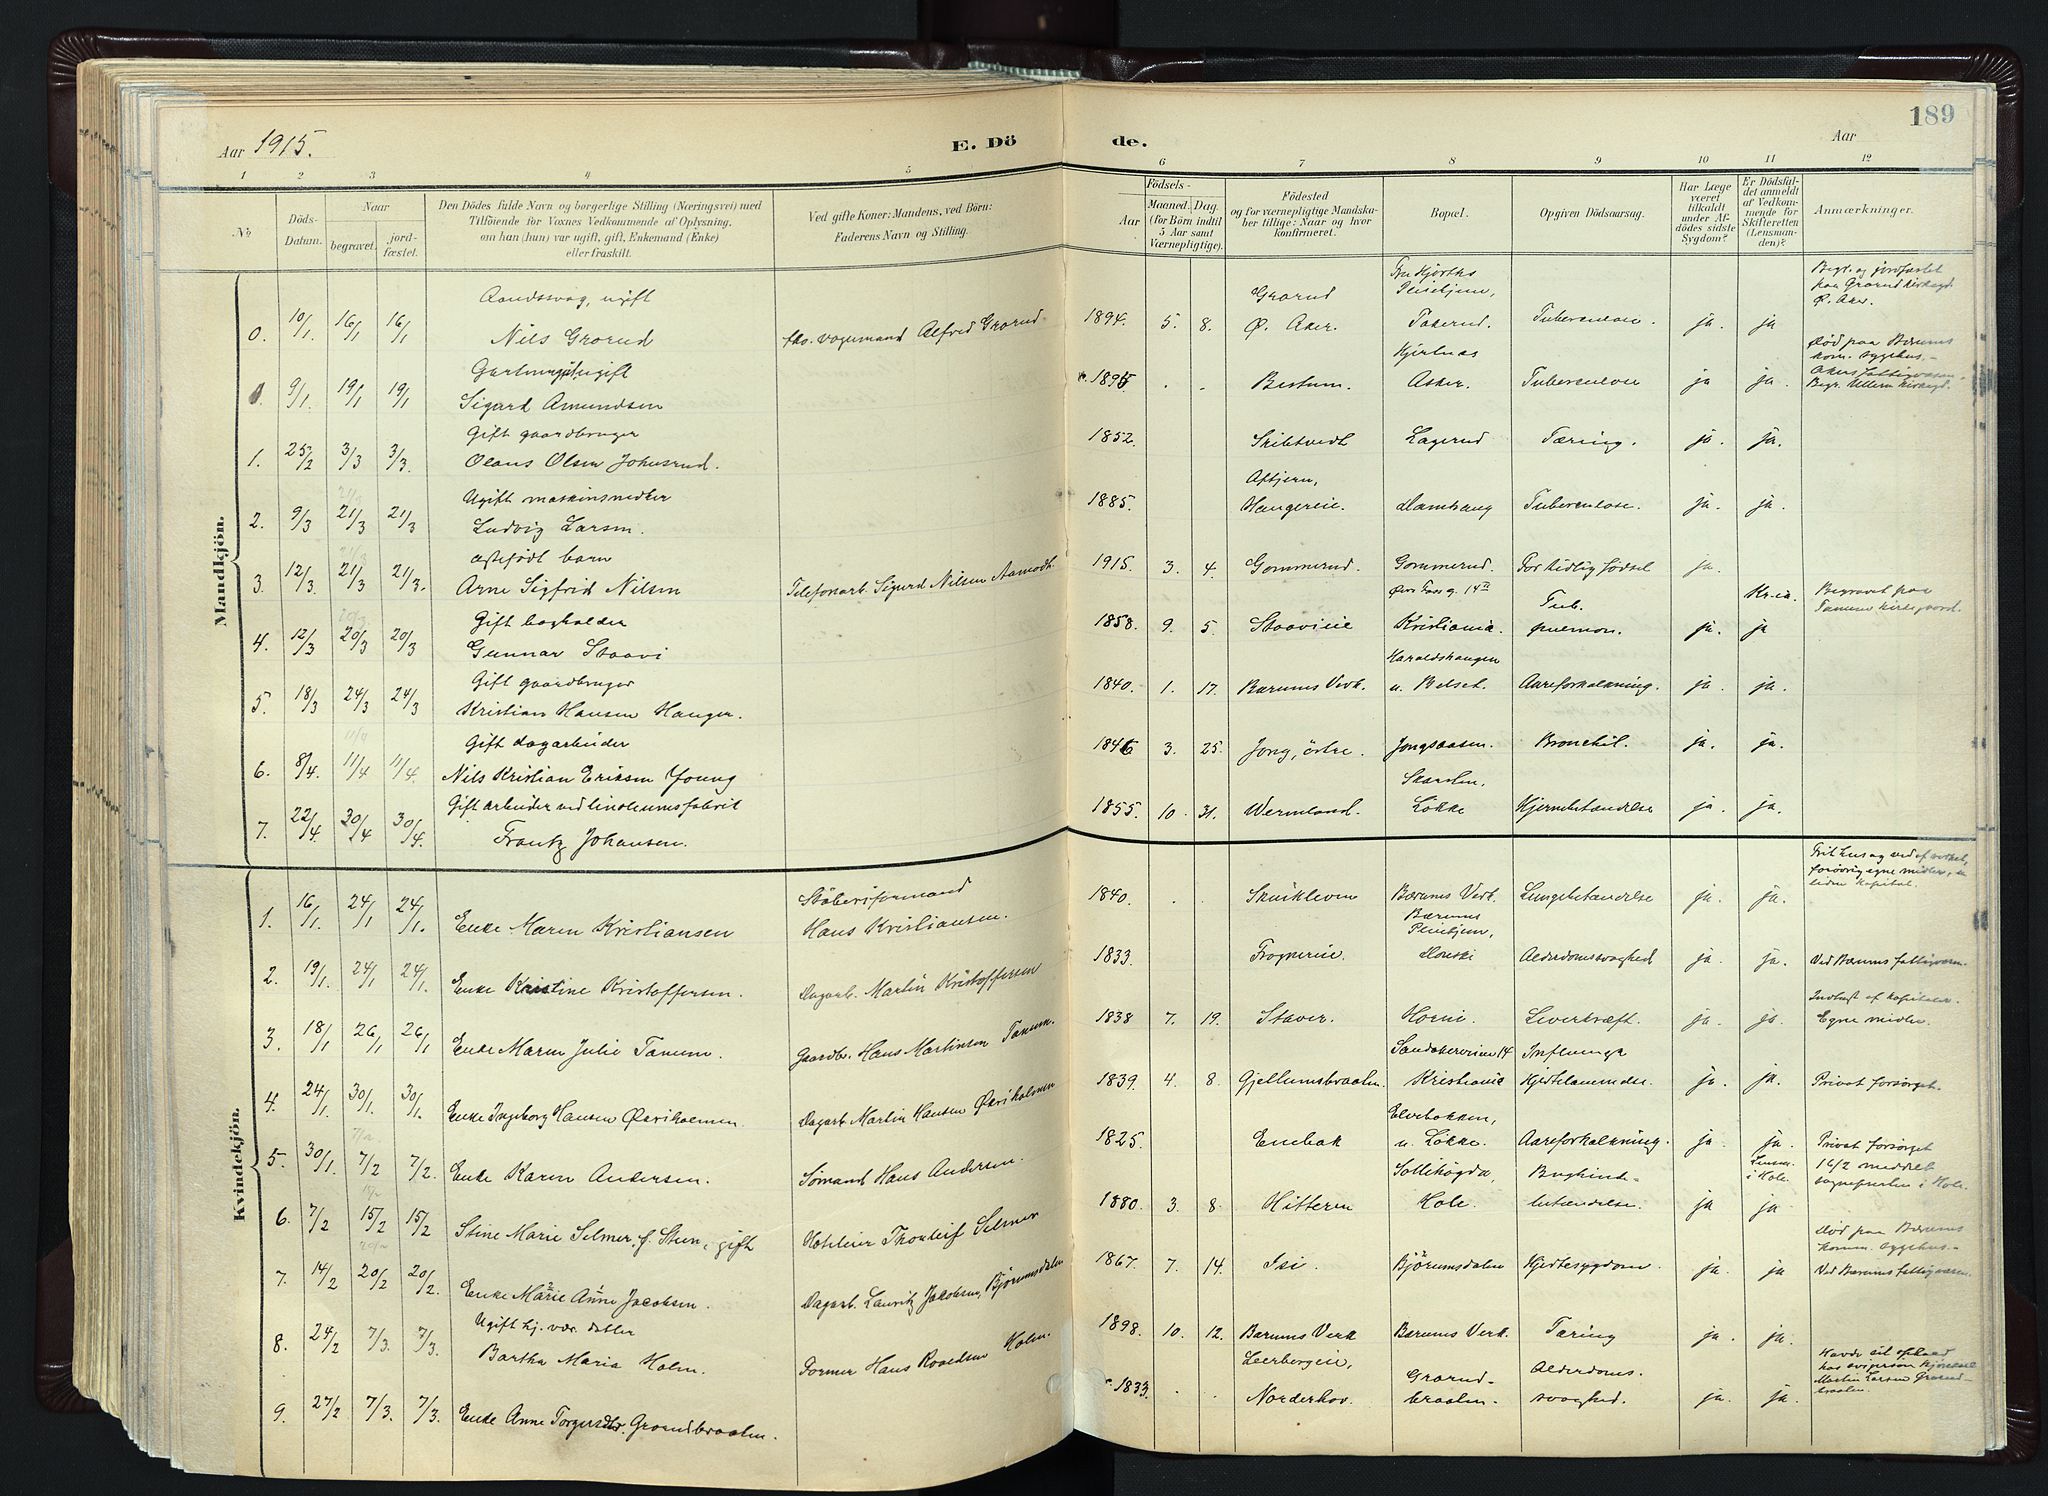 Aar 1915.
E. Dö
de.
189
Aar
1 2 3 4 5 6 7 8 9 10 11 12
№
Döds-Datum.
Naar
begravet.
jord-fæstet.
Den Dödes fulde Navn og borgerlige Stilling (Næringsvei) med
Tilföiende for Voxnes Vedkommende af Oplysning,
om han (hun) var ugift, gift, Enkemand (Enke)
eller fraskilt.
Ved gifte Koner: Mandens, ved Börn:
Faderens Navn og Stilling.
Födsels-
Aar
Maaned. Dag.
(for Börn indtil
5 Aar samt
Værnepligtige).
Födested
og for værnepligtige Mandska-
ber tillige: Naar og hvor
konfirmeret.
Bopæl.
Opgiven Dödsaarsag.
Har Læge
været
tilkaldt
under Af-
dödes sidste
Sygdom?
Er Dödsful-
det anmeldt
af Vedkom-
mende for
Skifteretten
(Lensman-
den)?
Anmærkninger.
Mandkjön.
0. 10/1 16/1 16/1 Aandssvag, ugift
Nils Grorud
Alfred Grorud 1894. 5. 8. Grorud Ø. Aker. Pleiehjem, Tuberculose. ja. ja
Begr. og jordfæstet paa Grorud kirkegd. Ø. Aker.
9/1. 19/1 19/1 ugift
Sigurd Amundsen
Bestum. Hjertnæs Asker. Tuberculose ja ja.
Død paa Bærums kom. sygehus.
Akers fattigvæsen. Begr. Ullern kirkegd.
1. 25/2 3/3 3/3. Gift gaardbruger
Olaus Olsen Johnsrud.
1852. Skibtvedt Lagerud Tæring. ja. ja.
2. 9/3 21/3 21/3 Ugift maskinsmedlær
Ludvig Larsen.
1885. Hangereie. Tuberculose. ja. ja.
3. 12/3. 21/3 21/3. ægtefødt barn
Arne Sigfrid Nilsen
Telefonarb. Sigurd Nilsen Aamodt.
1915. 3. 4. Gommerud. Gommerud. For tidlig födsel ja.
4. 12/3 20/3 20/3 Gift bogholder
Gunnar Staavi
1858. 9. 5. Staavieie Kristiania. Tub. pneumon. ja. Kr.ia. ja
Begravet paa Tanum kirkegaard.
5. 18/3 24/3 24/3 Gift gaardbruger
Kristian Hansen Hanger.
1840. 1. 17. Bærums Verk. Haraldshaugen u. Belset. Aareforkalkning. ja. ja.
6. 8/4. 11/4 11/4. Gift dagarbeider
Nils Kristian Eriksen Young
3. 25. Jong, östre. Jongsaasen. Bronchit. ja. ja.
7. 22/4. 30/4 30/4. Gift arbeider ved linoleumsfabrik
Frantz Johansen.
1855. 10. 31. Wermland. Løkke Hjernebetændelse ja. ja.
Kvindekjön.
1. 16/1. 24/1 24/1. Enke Maren Kristiansen
Støberiformand Hans Kristiansen.
1840. Bærums Verk. Lungebetændelse ja. ja.
2. 19/1. 24/1 24/1. Enke Kristine Kristoffersen.
Dagarb. Martin Kristoffersen
1833. Frognereie. Bærums Pleiehjem, Alderdomssvaghed ja. ja. Ved Bærums fattigvæsen.
3. 18/1 26/1 26/1 Enke Maren Julie Tanum.
Gaardbr. Hans Martinsen Tanum.
1838 7. 19. Staver. Leverkræft. ja. ja. Egne midler.
4. 24/1. 30/1. 30/1. Enke Ingeborg Hansen
Dagarb. Martin Hansen
1839. 4. 8. Gjellumsbraaten. Sandakerveien 14 Kristiania Influenza Hjertelammelse. ja. ja. Privat forsørget.
5. 30/1. 7/2 7/2. Enke Karen Andersen.
Sømand Hans Andersen.
1825. Enebak Elvebakken, u. Løkke. Aareforkalkning. ja. ja. Privat forsørget
6. 7/2 15/2 15/2 Stine Marie Selmer, f. Steen, gift
Hoteleier Thorleif Selmer
1880. 3. 8. Hitteren Sollihøgda, Hole. Bughinde-betændelse. ja ja
Lensm. i Hole.
16/2 meddelt sognepresten i Hole.
7. 14/2 20/2 20/2. Enke Marie Anne Jacobsen.
Dagarb. Lauritz Jakobsen, Bjørumsdalen
1867. 7. 14. Isi. Bjørumsdalen Hjertesygdom. ja. ja
Død paa Bærums komm. sygehus.
Ved Bærums fattigvæsen.
8. 24/2 7/3. 7/3. Ugift hj. vær. datter
Bartha Maria Holm.
Former Hans Roaldsen Holm.
1898. 10. 12. Bærums Verk Bærums Verk. Tæring ja. ja.
9. 27/2 7/3. 7/3. Enke Anne Torgersdtr. Grorudbraaten.
1833. Norderhov. Grorud-braaten. Alderdoms-svaghed. ja. ja.